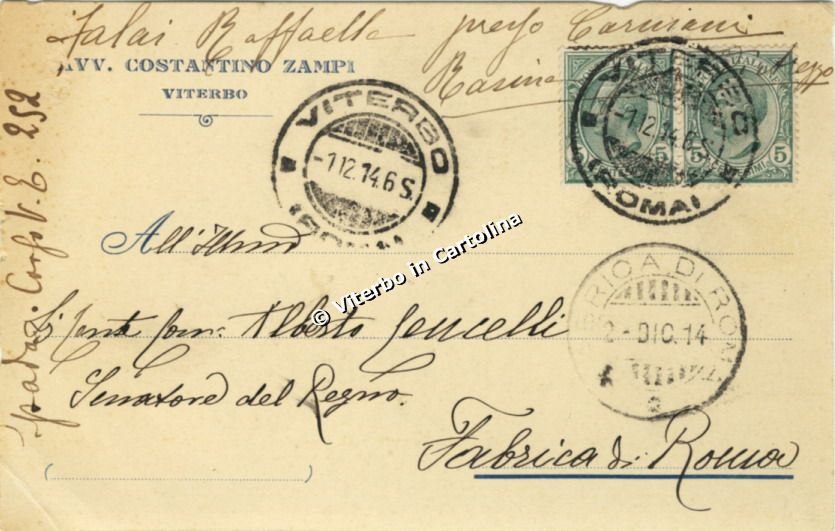 Falai Raffaella presso
AVV. COSTANTINO ZAMPI
VITERBO
VITERBO
-1.12.14.6 S.
(ROMA)
VITERBO
-1.12.14.6 S.
(ROMA)
5 5
Corso V. E. 252
All'Illmo
Conte Alberto Cencelli
Senatore del Regno.
FABRICA DI ROMA
2 - DIC. 14
Fabrica di Roma
© Viterbo in Cartolina